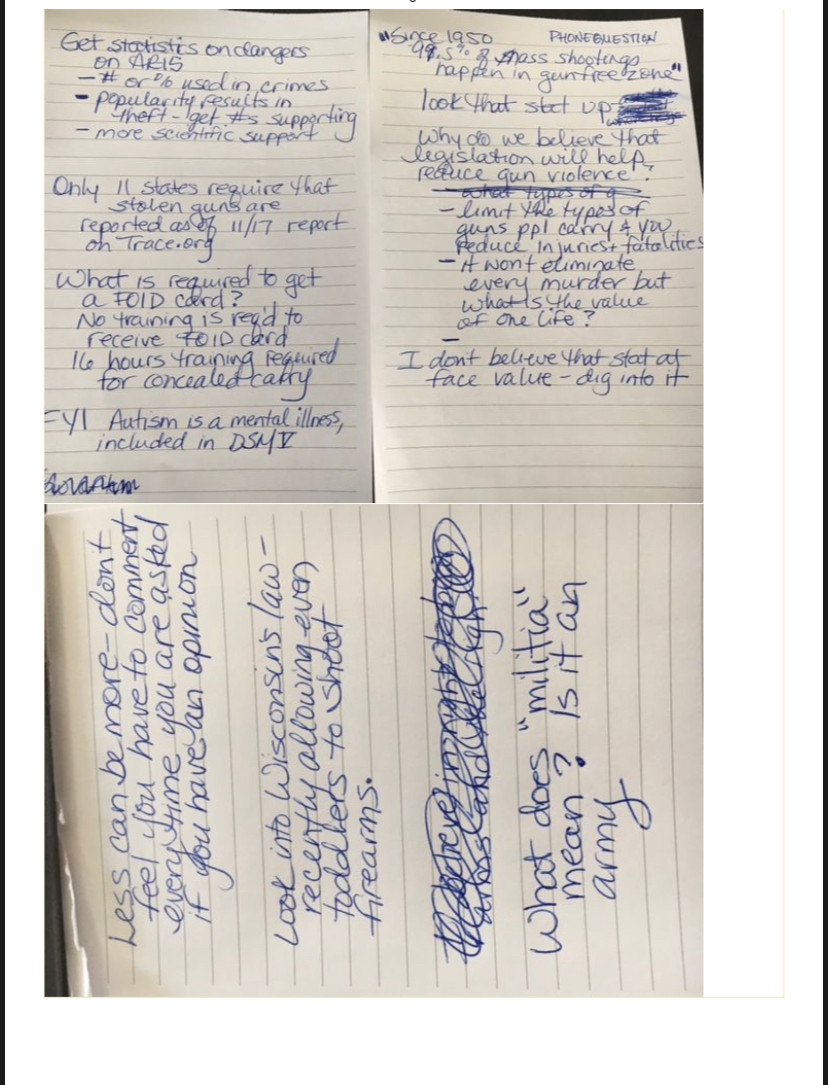 Get statistics on dangers
on AR15
- # or % used in crimes
- popularity results in
theft - get #s supporting
- more scientific support
Only 11 states require that
stolen guns are
reported as of 11/17 report
on Trace.org
What is required to get
a FOID card?
No training is req'd to
receive FOID card
16 hours training required
for concealed carry
FYI Autism is a mental illness,
included in DSM V
"Since 1950 PHONE QUESTION
% of mass shootings
happen in gun free zone"
look that stat up
Why do we believe that
legislation will help
reduce gun violence?
what types of g
- limit the types of
guns ppl carry & you
reduce injuries + fatalities
- it won't eliminate
every murder but
what is the value
of one life?
-
I don't believe that stat at
face value - dig into it
Less can be more - don't
feel you have to comment
every time you are asked
if you have an opinion
Look into Wisconsin's law -
recently allowing even
toddlers to shoot
firearms.
What does "militia"
mean? Is it an
army